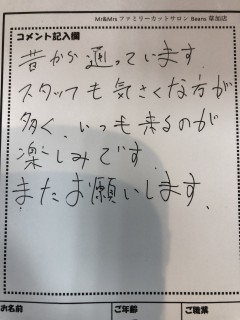 Mr&Mrs ファミリーカットサロン Beans 草加店
コメント記入欄
昔から通っています
スタッフも気さくな方が
多く、いつも来るのが
楽しみです。
またお願いします。
お名前
ご年齢
ご職業